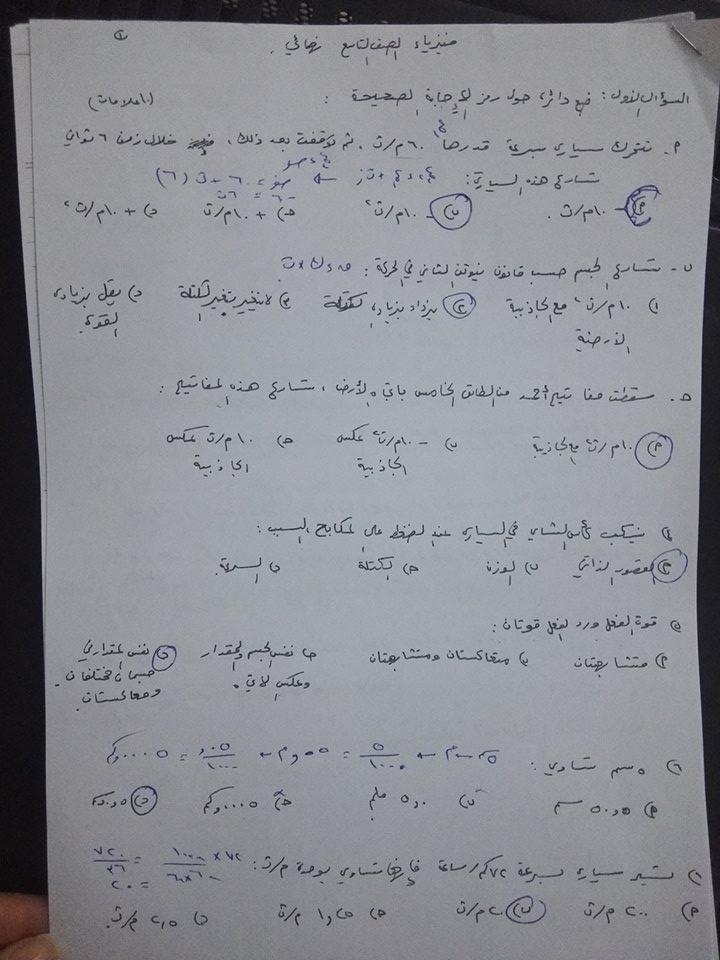 فيزياء الصف التاسع نهائي
السؤال الاول: ضع دائرة حول رمز الإجابة الصحيحة : (١٠ علامات)
٢. تتحرك سيارة بسرعة قدرها ٦٠ م/ث، ثم توقفت بعد ذلك، خلال زمن ٦ ثواني
تسارع هذه السيارة: صفر = ٦٠ + ت(٦)
أ) -١٠م/ث. ب) -١٠م/ث٢ ج) +١٠م/ث د) +١٠م/ث٢
ب- تسارع الجسم حسب قانون نيوتن الثاني في الحركة: ق = ك × ت
١) ١٠م/ث٢ مع الجاذبية الأرضية ٢) يزداد بزيادة الكتلة ٣) لا تتغير بتغير الكتلة د) يقل بزيادة القوة
ج. سقطت مفاتيح أحمد من الطابق الخامس باتجاه الأرض، تسارع هذه المفاتيح :
أ) ١٠م/ث٢ مع الجاذبية ب) -١٠م/ث٢ عكس الجاذبية ج) ١٠م/ث عكس الجاذبية
٤) ينسكب كأس الشاي في السيارة عند الضغط على المكابح، السبب:
أ) القصور الذاتي ب) الوزن ج) الكتلة د) السرعة.
٥) قوة الفعل ورد الفعل قوتان:
أ) متشابهتان ب) متعاكستان ومتشابهتان ج) نفس الجسم والمقدار وعكس الاتجاه. د) نفس المقدار في جسمان مختلفان ومتعاكستان.
٦) ٥سم تساوي:
أ) ٥٠و٠ سم ب) ٥٠و٠ ملم ج) ٠٠٠٥و٠كم
٧) تسير سيارة بسرعة ٧٢كم/ساعة فإنها تساوي بوحدة م/ث: ٧٢×١٠٠٠ / ٦٠×٦٠ = ٧٢٠ / ٣٦
= ٢٠
أ) ٢٠٠ م/ث ب) ٢٠م/ث ج) ١و٠ م/ث د) ٢٫٥ م/ث.